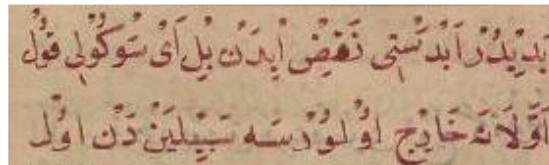 يديدر آبدستى نقض ايدن بل اى سوكولى قول
اولا نه خارج اولورسه سبيلين دن اول